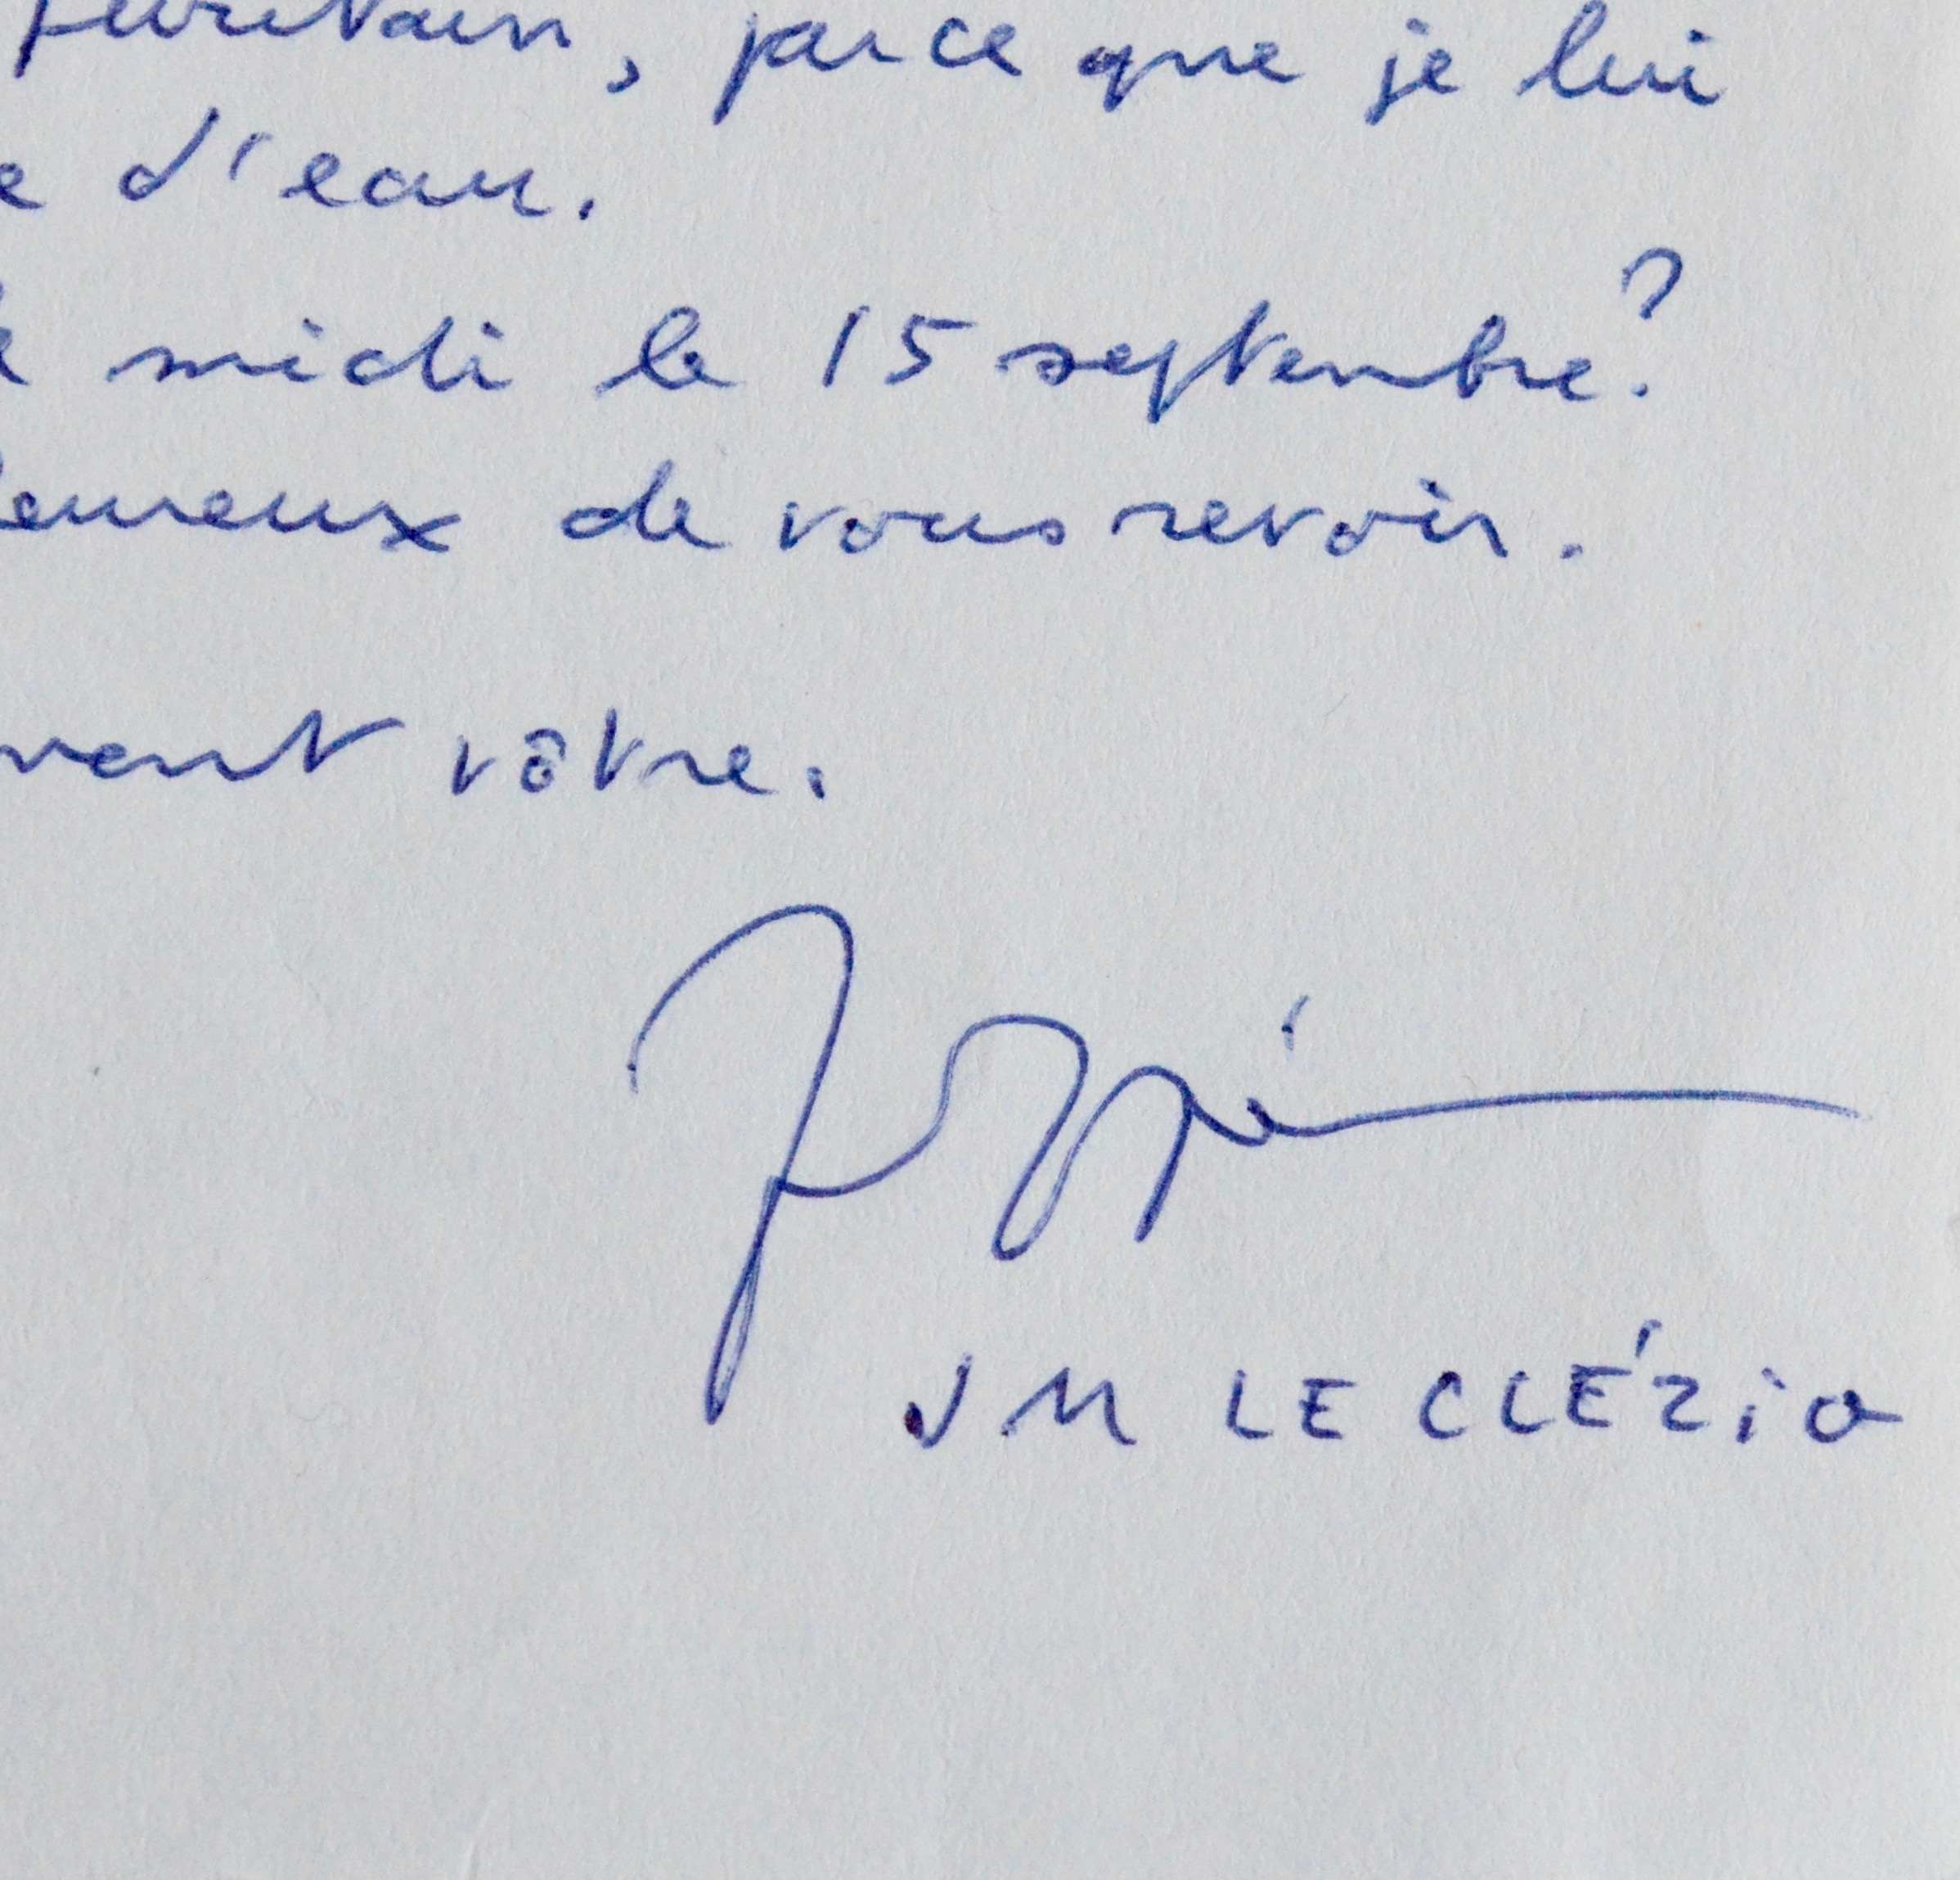 puritain, parce que je lui
e d'eau.
midi le 15 septembre?
heureux de vous revoir.
vôtre.
JM LE CLÉZiO